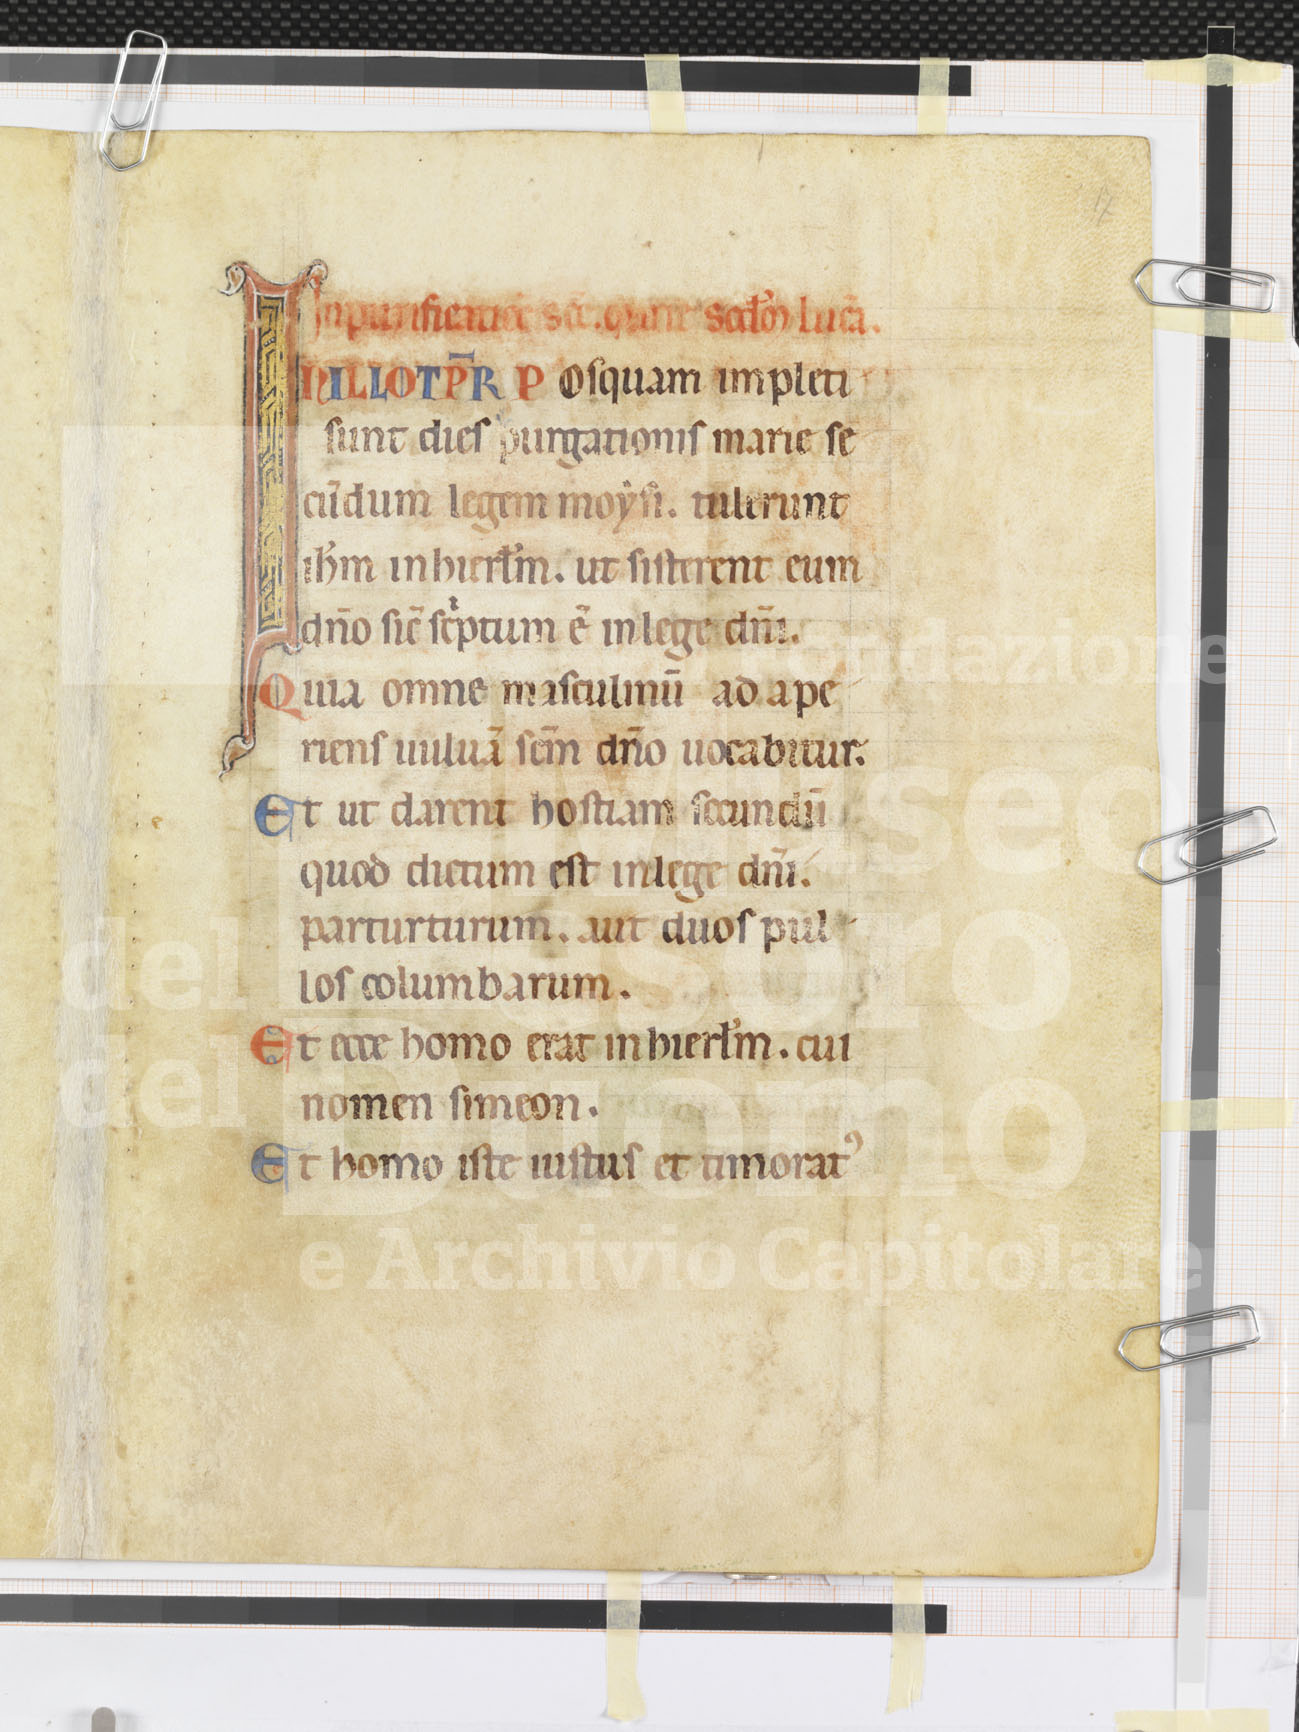 In purificatiōe scē. marie secđm lucā.
IN ILLO T̄PR P Osquam impleti
sunt dies purgationis marie se
cūdum legem moẏsi. tulerunt
ihm in hierłm. ut sisterent eum
dño sic̄ scͥptum ē in lege dñi.
Quia omne masculinū ad ape
riens uuluā sc̄m dño uocabitur.
Et ut darent hostiam secundū
quod dictum est in lege dñi.
par turturum. aut duos pul
los columbarum.
Et ecce homo erat in hierłm. cui
nomen simeon.
Et homo iste iustus et timoratꝰ
17
Fondazione
Museo
del Tesoro
del Duomo
e Archivio Capitolare